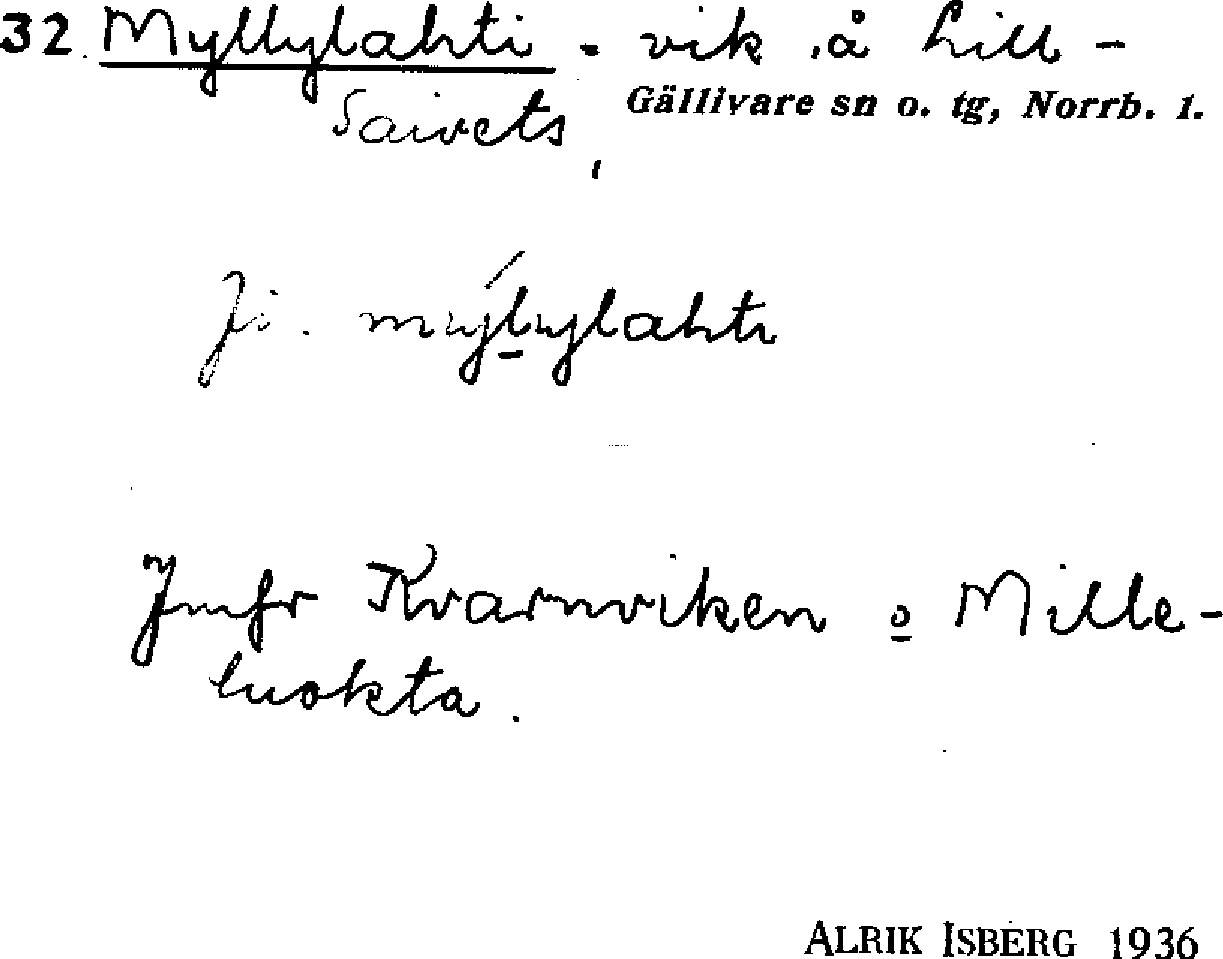 32 Myllylahti - vik å Lill-
Gällivare sn o. tg, Norrb. l.
Saivets,
fi. mýl̲ylahti
Jmfr Kvarnviken o̲ Mille-
luokta.
ALRIK ISBERG 1936